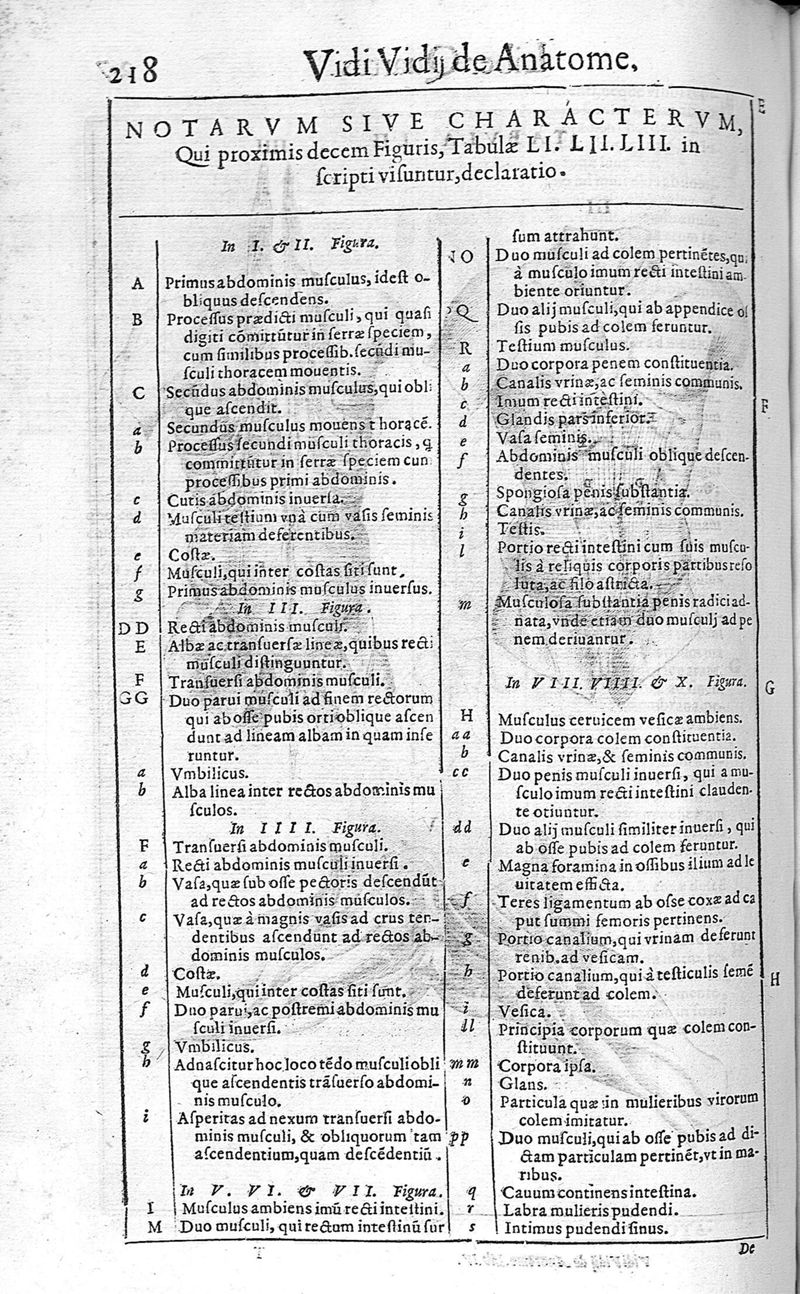 218 Vidi Vidij de Anatome,
NOTARVM SIVE CHARACTERVM,
Qui proximis decem Figuris, Tabulæ LI. LII. LIII. in
ſcripti viſuntur, declaratio.
E
In I. & II. Figura.
A Primus abdominis muſculus, ideſt o-
bliquus deſcendens.
B Proceſſus prædicti muſculi, qui quaſi
digiti cõmittũtur in ſerræ ſpeciem,
cum ſimilibus proceſſib. ſecũdi mu-
ſculi thoracem mouentis.
C Secũdus abdominis muſculus, qui obli
que aſcendit.
a Secundus muſculus mouens thoracẽ.
b Proceſſus ſecundi muſculi thoracis, q
committũtur in ſerræ ſpeciem cun
proceſſibus primi abdominis.
c Cutis abdominis inuerſa.
d Muſculi teſtium vnà cum vaſis ſeminis
materiam deferentibus.
e Coſtæ.
f Muſculi, qui inter coſtas ſiti ſunt.
g Primus abdominis muſculus inuerſus.
In III. Figura.
DD Recti abdominis muſculi.
E Albæ ac tranſuerſæ lineæ, quibus recti
muſculi diſtinguuntur.
F Tranſuerſi abdominis muſculi.
GG Duo parui muſculi ad finem rectorum
qui ab oſſe pubis orti oblique aſcen
dunt ad lineam albam in quam inſe
runtur.
a Vmbilicus.
b Alba linea inter rectos abdominis mu
ſculos.
In IIII. Figura.
F Tranſuerſi abdominis muſculi.
a Recti abdominis muſculi inuerſi.
b Vaſa, quæ ſub oſſe pectoris deſcendũt
ad rectos abdominis muſculos.
c Vaſa, quæ à magnis vaſis ad crus ten-
dentibus aſcendunt ad rectos ab-
dominis muſculos.
d Coſtæ.
e Muſculi, qui inter coſtas ſiti ſunt.
f Duo parui, ac poſtremi abdominis mu
ſculi inuerſi.
g Vmbilicus.
h Adnaſcitur hoc loco tẽdo muſculi obli
que aſcendentis trãſuerſo abdomi-
nis muſculo.
i Aſperitas ad nexum tranſuerſi abdo-
minis muſculi, & obliquorum tam
aſcendentium, quam deſcẽdentiũ.
In V. VI. & VII. Figura.
I Muſculus ambiens imũ recti inteſtini.
M Duo muſculi, qui rectum inteſtinũ ſur
ſum attrahunt.
NO Duo muſculi ad colem pertinẽtes, qui
à muſculo imum recti inteſtini am-
biente oriuntur.
PQ Duo alij muſculi, qui ab appendice oſ
ſis pubis ad colem feruntur.
R Teſtium muſculus.
a Duo corpora penem conſtituentia.
b Canalis vrinæ, ac ſeminis communis.
c Imum recti inteſtini.
F
d Glandis pars inferior.
e Vaſa ſeminis.
f Abdominis muſculi oblique deſcen-
dentes.
g Spongioſa penis ſubſtantia.
h Canalis vrinæ, ac ſeminis communis.
i Teſtis.
l Portio recti inteſtini cum ſuis muſcu-
lis à reliquis corporis partibus reſo
luta, ac filo aſtricta.
m Muſculoſa ſubſtantia penis radici ad-
nata, vnde etiam duo muſculj ad pe
nem deriuantur.
In VIII. VIIII. & X. Figura.
G
H Muſculus ceruicem veſicæ ambiens.
aa Duo corpora colem conſtituentia.
b Canalis vrinæ, & ſeminis communis.
cc Duo penis muſculi inuerſi, qui a mu-
ſculo imum recti inteſtini clauden-
te otiuntur.
dd Duo alij muſculi ſimiliter inuerſi, qui
ab oſſe pubis ad colem feruntur.
e Magna foramina in oſſibus ilium ad le
uitatem effīcta.
f Teres ligamentum ab oſse coxæ ad ca
put ſummi femoris pertinens.
g Portio canalium, qui vrinam deferunt
renib. ad veſicam.
h Portio canalium, qui à teſticulis ſemẽ
deferunt ad colem.
H
i Veſica.
ll Principia corporum quæ colem con-
ſtituunt.
mm Corpora ipſa.
n Glans.
o Particula quæ in mulieribus virorum
colem imitatur.
pp Duo muſculi, qui ab oſſe pubis ad di-
ctam particulam pertinẽt, vt in ma-
ribus.
q Cauum continens inteſtina.
r Labra mulieris pudendi.
s Intimus pudendi ſinus.
De